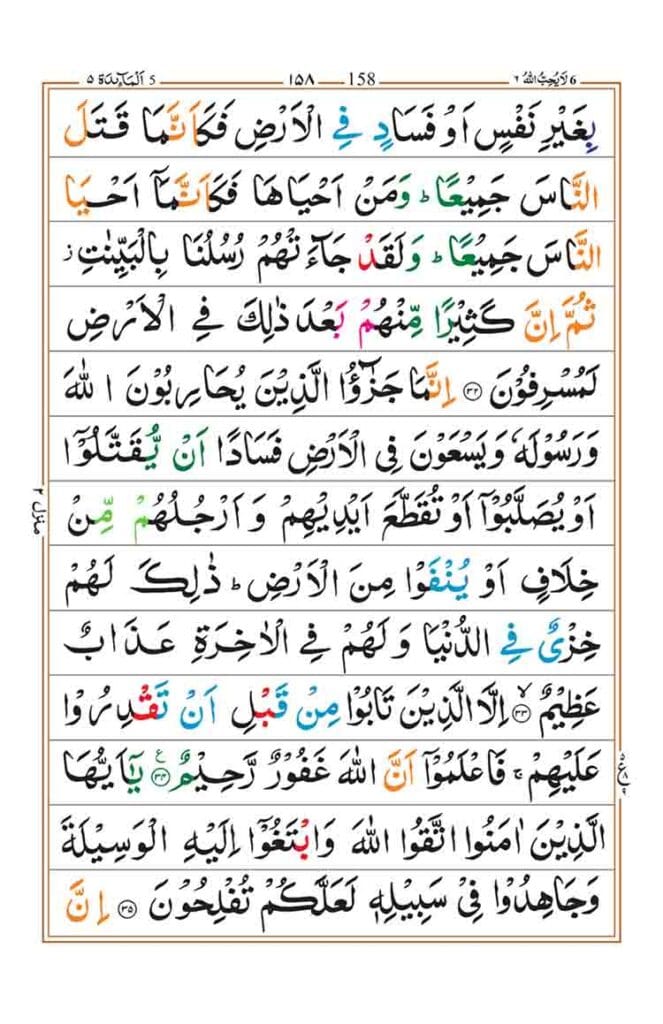 6 لَا يُحِبُّ اللهُ ٦ 158 ١٥٨ 5 اَلْمَآئِدَة ٥
بِغَيْرِ نَفْسٍ اَوْ فَسَادٍ فِي الْاَرْضِ فَكَاَنَّمَا قَتَلَ
النَّاسَ جَمِيْعًا ؕ وَمَنْ اَحْيَاهَا فَكَاَنَّمَاۤ اَحْيَا
النَّاسَ جَمِيْعًا ؕ وَلَقَدْ جَآءَتْهُمْ رُسُلُنَا بِالْبَيِّنٰتِ ز
ثُمَّ اِنَّ كَثِيْرًا مِّنْهُمْ بَعْدَ ذٰلِكَ فِي الْاَرْضِ
لَمُسْرِفُوْنَ ﴿۳۲﴾ اِنَّمَا جَزٰٓؤُا الَّذِيْنَ يُحَارِبُوْنَ اللهَ
وَرَسُوْلَهٗ وَيَسْعَوْنَ فِي الْاَرْضِ فَسَادًا اَنْ يُّقَتَّلُوْۤا
اَوْ يُصَلَّبُوْۤا اَوْ تُقَطَّعَ اَيْدِيْهِمْ وَاَرْجُلُهُمْ مِّنْ
خِلَافٍ اَوْ يُنْفَوْا مِنَ الْاَرْضِ ؕ ذٰلِكَ لَهُمْ
خِزْيٌ فِي الدُّنْيَا وَلَهُمْ فِي الْاٰخِرَةِ عَذَابٌ
عَظِيْمٌ ﴿۳۳﴾ۙ اِلَّا الَّذِيْنَ تَابُوْا مِنْ قَبْلِ اَنْ تَقْدِرُوْا
عَلَيْهِمْ ۚ فَاعْلَمُوْۤا اَنَّ اللهَ غَفُوْرٌ رَّحِيْمٌ ﴿۳۴﴾ع يٰۤاَيُّهَا
الَّذِيْنَ اٰمَنُوا اتَّقُوا اللهَ وَابْتَغُوْۤا اِلَيْهِ الْوَسِيْلَةَ
وَجَاهِدُوْا فِيْ سَبِيْلِهٖ لَعَلَّكُمْ تُفْلِحُوْنَ ﴿۳۵﴾ اِنَّ
منزل ٢